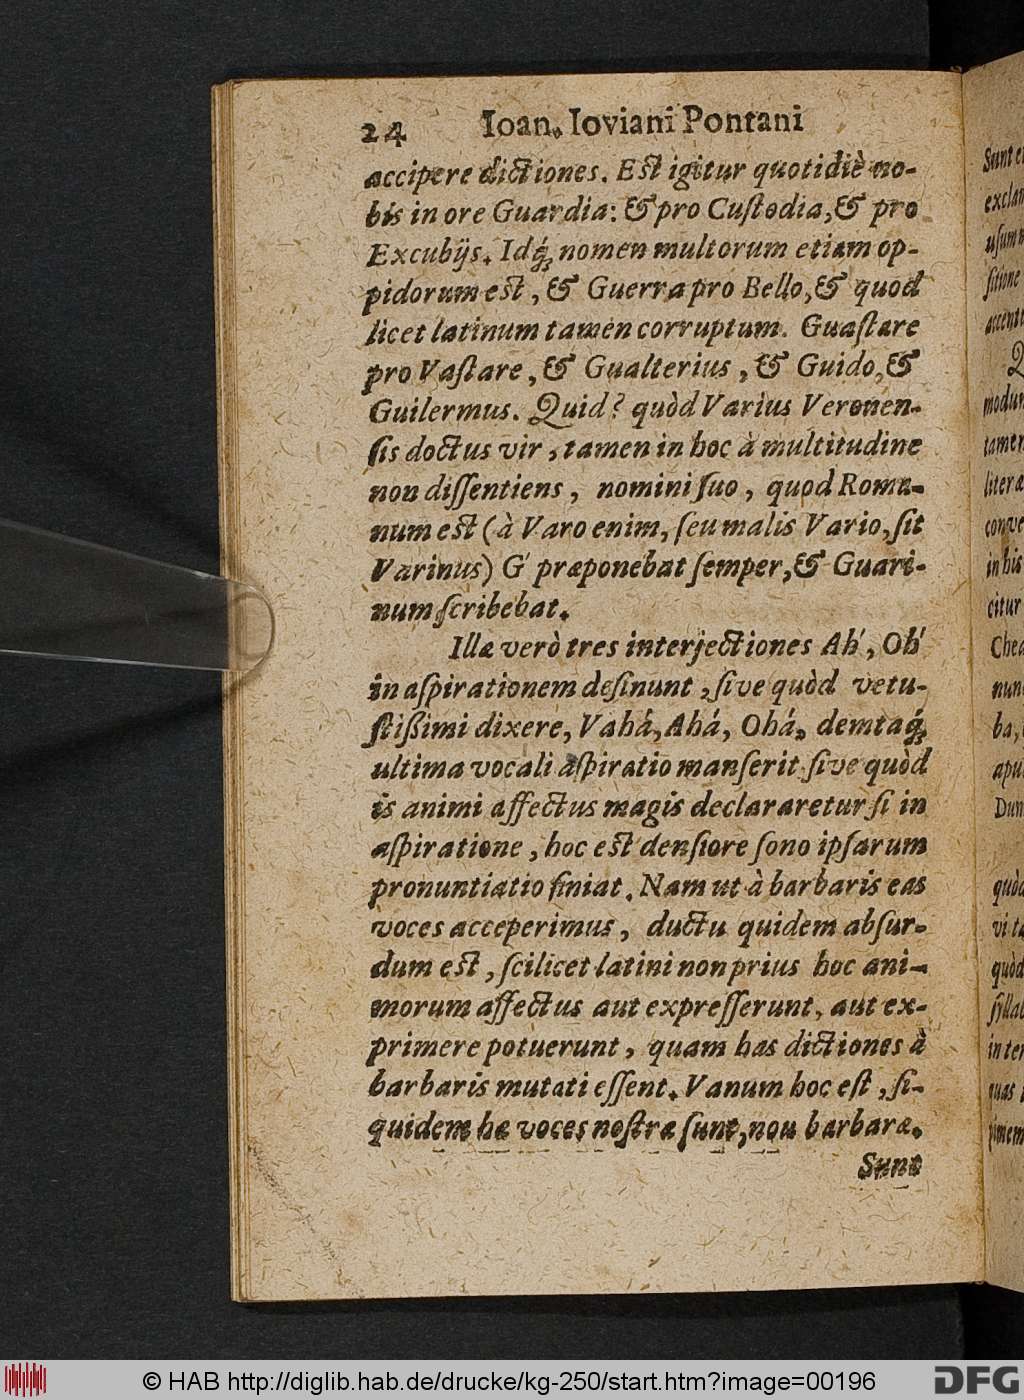 24 Ioan. Ioviani Pontani
accipere dictiones. Est igitur quotidiè no-
bis in ore Guardia: & pro Cuſtodia, & pro
Excubijs. Idq́; nomen multorum etiam op-
pidorum est, & Guerra pro Bello, & quod
licet latinum tamen corruptum. Guaſtare
pro Vaſtare, & Gualterius, & Guido, &
Guilermus. Quid? quòd Varius Veronen-
ſis doctus vir, tamen in hoc à multitudine
non diſſentiens, nomini ſuo, quod Roma-
num est (à Varo enim, ſeu malis Vario, ſit
Varinus) G præponebat ſemper, & Guari-
num ſcribebat.
Illæ verò tres interjectiones Ah́, Oh́
in aſpirationem deſinunt, ſive quòd vetu-
ſtißimi dixere, Vahá, Ahá, Ohá, demtaq́;
ultima vocali aſpiratio manſerit ſive quòd
is animi affectus magis declararetur ſi in
aſpiratione, hoc est denſiore ſono ipſarum
pronuntiatio finiat. Nam ut à barbaris eas
voces acceperimus, ductu quidem abſur-
dum est, ſcilicet latini non prius hoc ani-
morum affectus aut expreſſerunt, aut ex-
primere potuerunt, quam has dictiones à
barbaris mutati eſſent. Vanum hoc eſt, ſi-
quidem hæ voces noſtræ ſunt, nou barbaræ.
Sunt
Sunt
uſum
ſitione
modum
tamen
literæ
in his
citur
ba,
quòd
quòd
quas
© HAB http://diglib.hab.de/drucke/kg-250/start.htm?image=00196
DFG